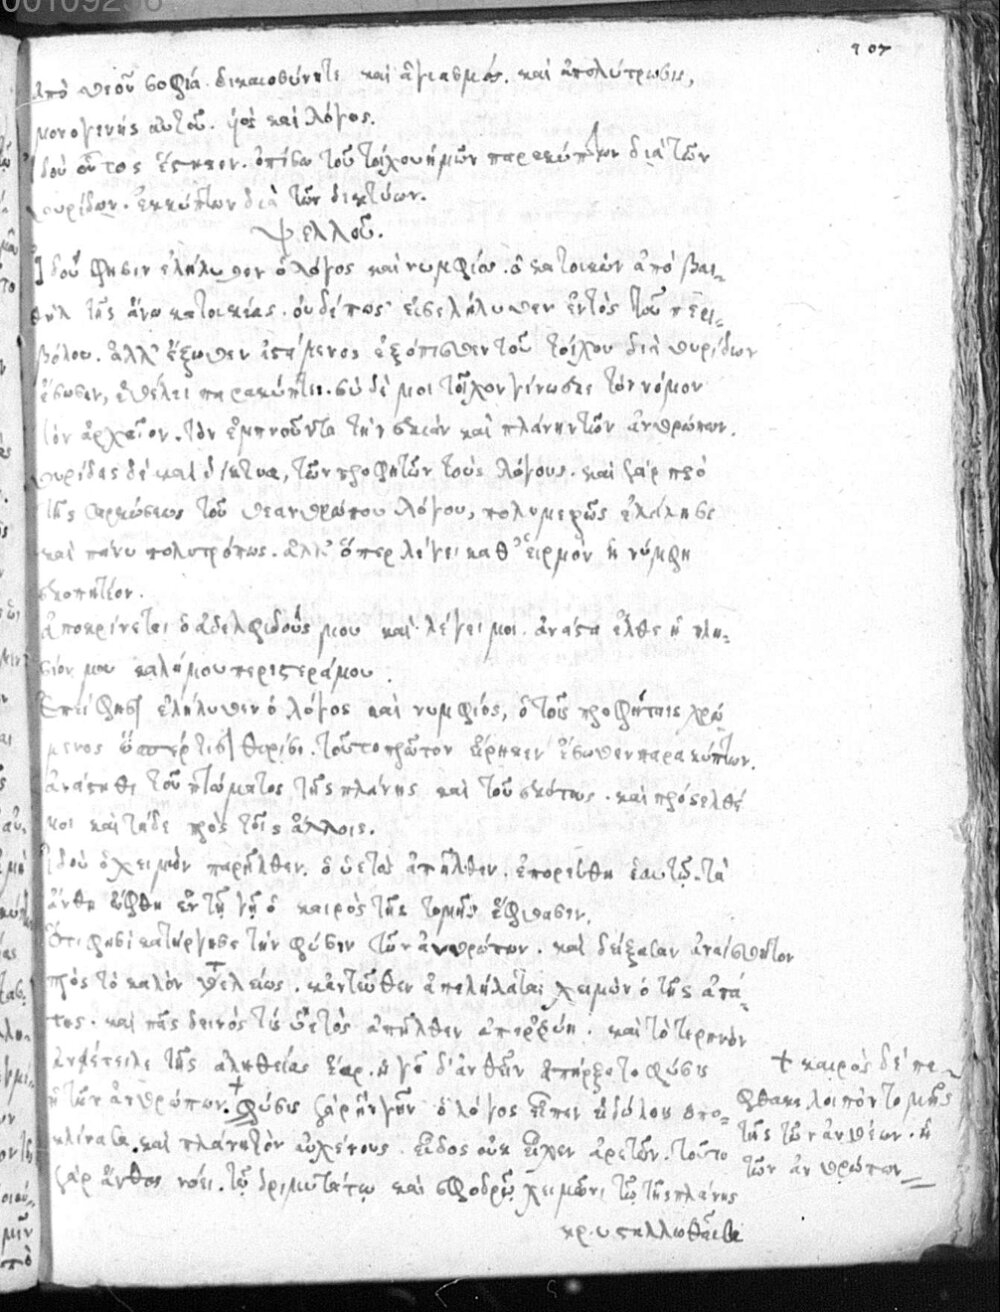 00109256
107
ἀπὸ θεοῦ σοφία. δικαιοσύνητε καὶ ἁγιασμός. καὶ ἀπολύτρωσις,
μονογενὴς αὐτοῦ. υἱὸς καὶ λόγος.
ἰδοὺ οὗτος ἕστηκεν. ὀπίσω τοῦ τοίχου ἡμῶν παρακύπτων διὰ τῶν
θυρίδων. ἐκκύπτων διὰ τῶν δικτύων.
ψελλοῦ.
Ἰδού φησιν ἐλήλυθεν ὁ λόγος καὶ νυμφίος. ὁ κατοικῶν ἀπὸ βαι-
θὴλ τῆς ἄνω κατοικίας. οὐδέπως εἰσελήλυθεν ἐντὸς τοῦ περι-
βόλου. ἀλλ' ἔξωθεν ἱστάμενος ἐξόπισθεν τοῦ τοίχου διὰ θυρίδων
ἔσωθεν, ἐθέλει παρακύπτει. σὺ δέ μοι τοῖχον γίνωσκε τὸν νόμον
τὸν ἀρχαῖον. τὸν ἐμπνοῦντα τὴν σκιὰν καὶ πλάνην τῶν ἀνθρώπων.
θυρίδας δὲ καὶ δίκτυα, τῶν προφητῶν τοὺς λόγους. καὶ γὰρ πρὸ
τῆς σαρκώσεως τοῦ θεανθρώπου λόγου, πολυμερῶς ἐλάλησε
καὶ πάνυ πολυτρόπως. ἀλλ' ὅπερ λέγει καθ' εἱρμὸν ἡ νύμφη
σκοπητέον.
ἀποκρίνεται ὁ ἀδελφιδούς μου καὶ λέγει μοι. ἀνάστα ἐλθὲ ἡ πλη-
σίον μου καλή μου περιστερά μου:
Ἐπεί φησιν ἐλήλυθεν ὁ λόγος καὶ νυμφίος, ὁ τοῖς προφήταις χρώ
μενος ὥσπερ τισὶ θυρίσι. τοῦτο πρῶτον εἴρηκεν ἔσωθεν παρακύπτων.
ἀνάστηθι τοῦ πτώματος τῆς πλάνης καὶ τοῦ σκότους. καὶ πρόσελθέ
μοι καὶ τάδε πρὸς τοῖς ἄλλοις.
Ἰδοὺ ὁ χειμὼν παρῆλθεν. ὁ ὑετὸς ἀπῆλθεν. ἐπορεύθη ἑαυτῷ. τὰ
ἄνθη ὤφθη ἐν τῇ γῇ ὁ καιρὸς τῆς τομῆς ἔφθασεν.
Ὅτι φησὶ κατήργησε τὴν φύσιν τῶν ἀνθρώπων. καὶ δείξασαν ἀναίσθητον
πρὸς τὸ καλὸν τελείως. κἀντεῦθεν ἀπελήλαται χειμὼν ὁ τῆς ἀπά-
της. καὶ πᾶς δεινός τις ὑετὸς ἀπῆλθεν ἀπερρύη. καὶ τὸ τερπνὸν
ἀνέτειλε τῆς ἀληθείας ἔαρ. ἡ γῆ δ' ἀνθεῖν ἀπήρξατο φύσις
ἡ τῶν ἀνθρώπων. + φύσις γὰρ ἦν γῆν ὁ λόγος εἶπεν εἰδώλου ὑπο-
κλίνασα. καὶ πλάνῃ τὸν αὐχένους. εἶδος οὐκ εἶχεν ἀρετῶν. τοῦτο
γὰρ ἄνθος νόει. τῷ δριμυτάτῳ καὶ σφοδρῷ χειμῶνι τῷ τῆς πλάνης
κρυσταλλωθεῖσα
+ καιρὸς δὲ πε-
φθακε λοιπὸν τομῆς
τῆς τῶν ἀνθέων. ἡ
τῶν ἀνθρώπων